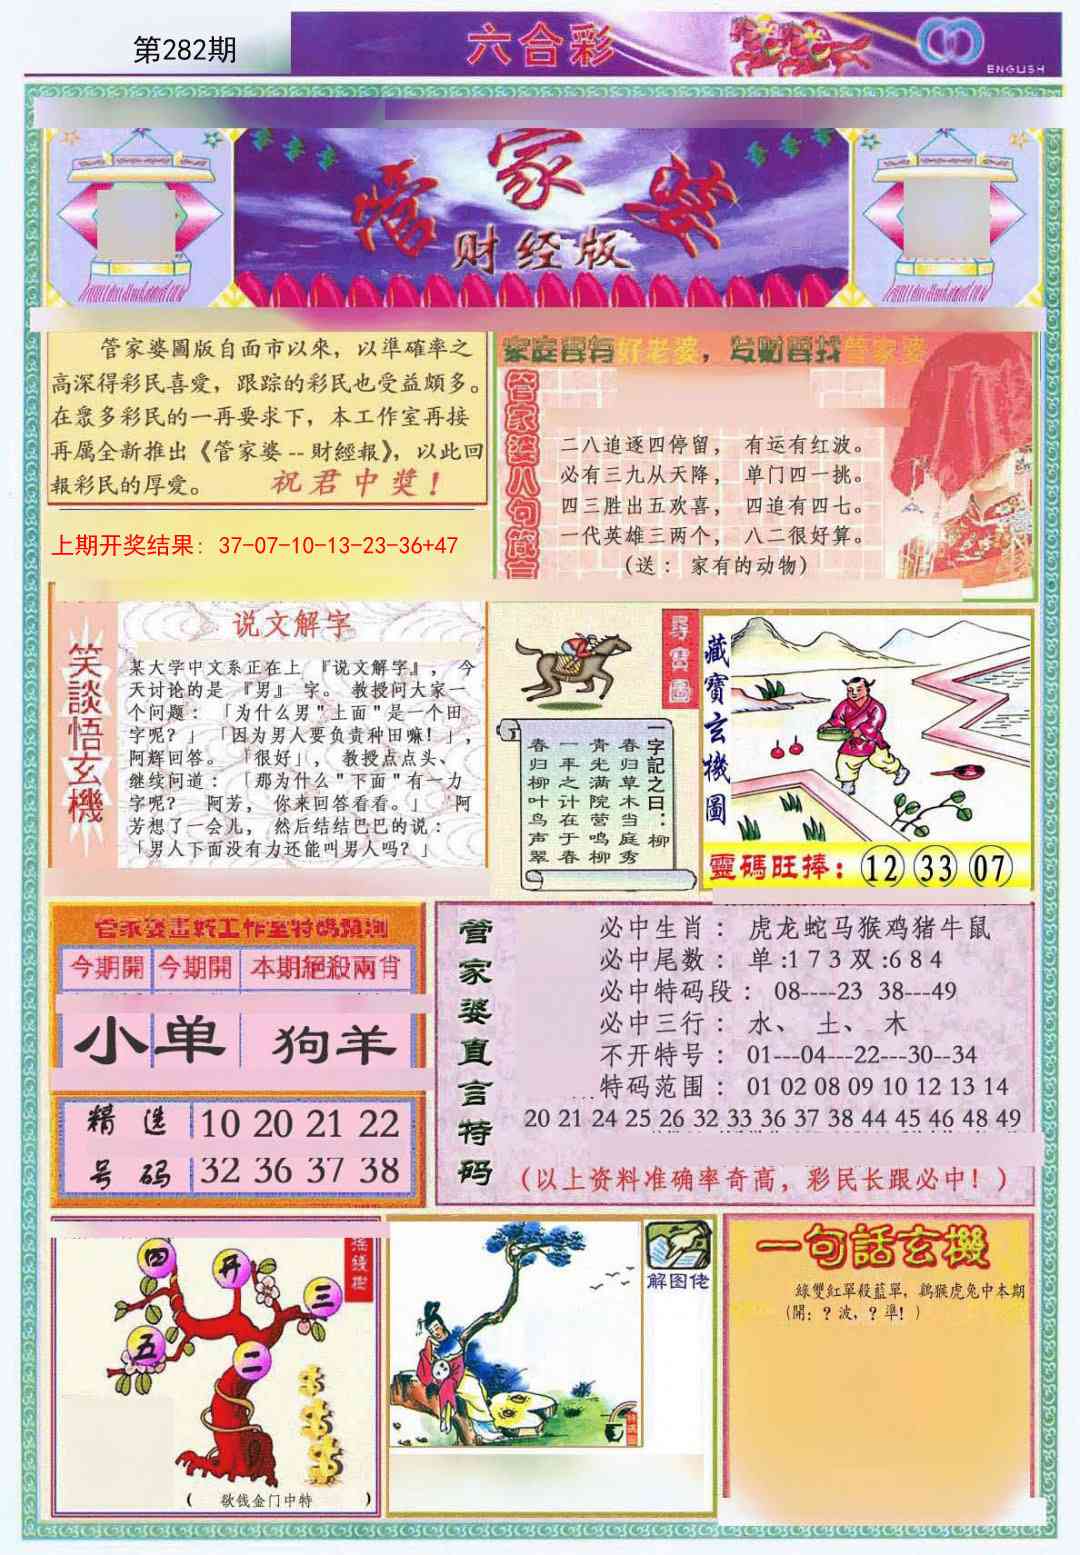 第282期
六合彩
ENGLISH
管家婆
财经版
管家婆圖版自面市以來，以準確率之
高深得彩民喜愛，跟踪的彩民也受益頗多。
在眾多彩民的一再要求下，本工作室再接
再厲全新推出《管家婆--財經報》，以此回
報彩民的厚愛。 祝君中獎！
上期开奖结果：37-07-10-13-23-36+47
家庭要有好老婆，发财要找管家婆
管家婆八句箴言
二八追逐四停留， 有运有红波。
必有三九从天降， 单门四一挑。
四三胜出五欢喜， 四追有四七。
一代英雄三两个， 八二很好算。
（送：家有的动物）
笑談悟玄機
说文解字
某大学中文系正在上『说文解字』，今
天讨论的是『男』字。教授问大家一
个问题：「为什么男"上面"是一个田
字呢？」「因为男人要负责种田嘛！」，
阿辉回答。「很好」，教授点点头、
继续问道：「那为什么"下面"有一力
字呢？ 阿芳，你来回答看看。」 阿
芳想了一会儿，然后结结巴巴的说：
「男人下面没有力还能叫男人吗？」
尋寶圖
一字記之曰：柳
春归草木当庭秀
青光满院营鸣柳
一年之计在于春
春归柳叶鸟声翠
藏寶玄機圖
靈碼旺捧：12 33 07
管家婆畫妩工作室特碼預测
今期開 今期開 本期絕殺兩肖
小 单 狗羊
精选 10 20 21 22
号码 32 36 37 38
管家婆直言特码
必中生肖： 虎龙蛇马猴鸡猪牛鼠
必中尾数： 单:1 7 3 双:6 8 4
必中特码段： 08----23 38---49
必中三行： 水、 土、 木
不开特号： 01---04---22---30--34
特码范围： 01 02 08 09 10 12 13 14
20 21 24 25 26 32 33 36 37 38 44 45 46 48 49
（以上资料准确率奇高，彩民长跟必中！）
摇錢樹
四
开
三
五
二
（ 欲钱金门中特 ）
解图佬
一句話玄機
綠雙紅單殺藍單，鷄猴虎兔中本期
（開：？波，？準！）